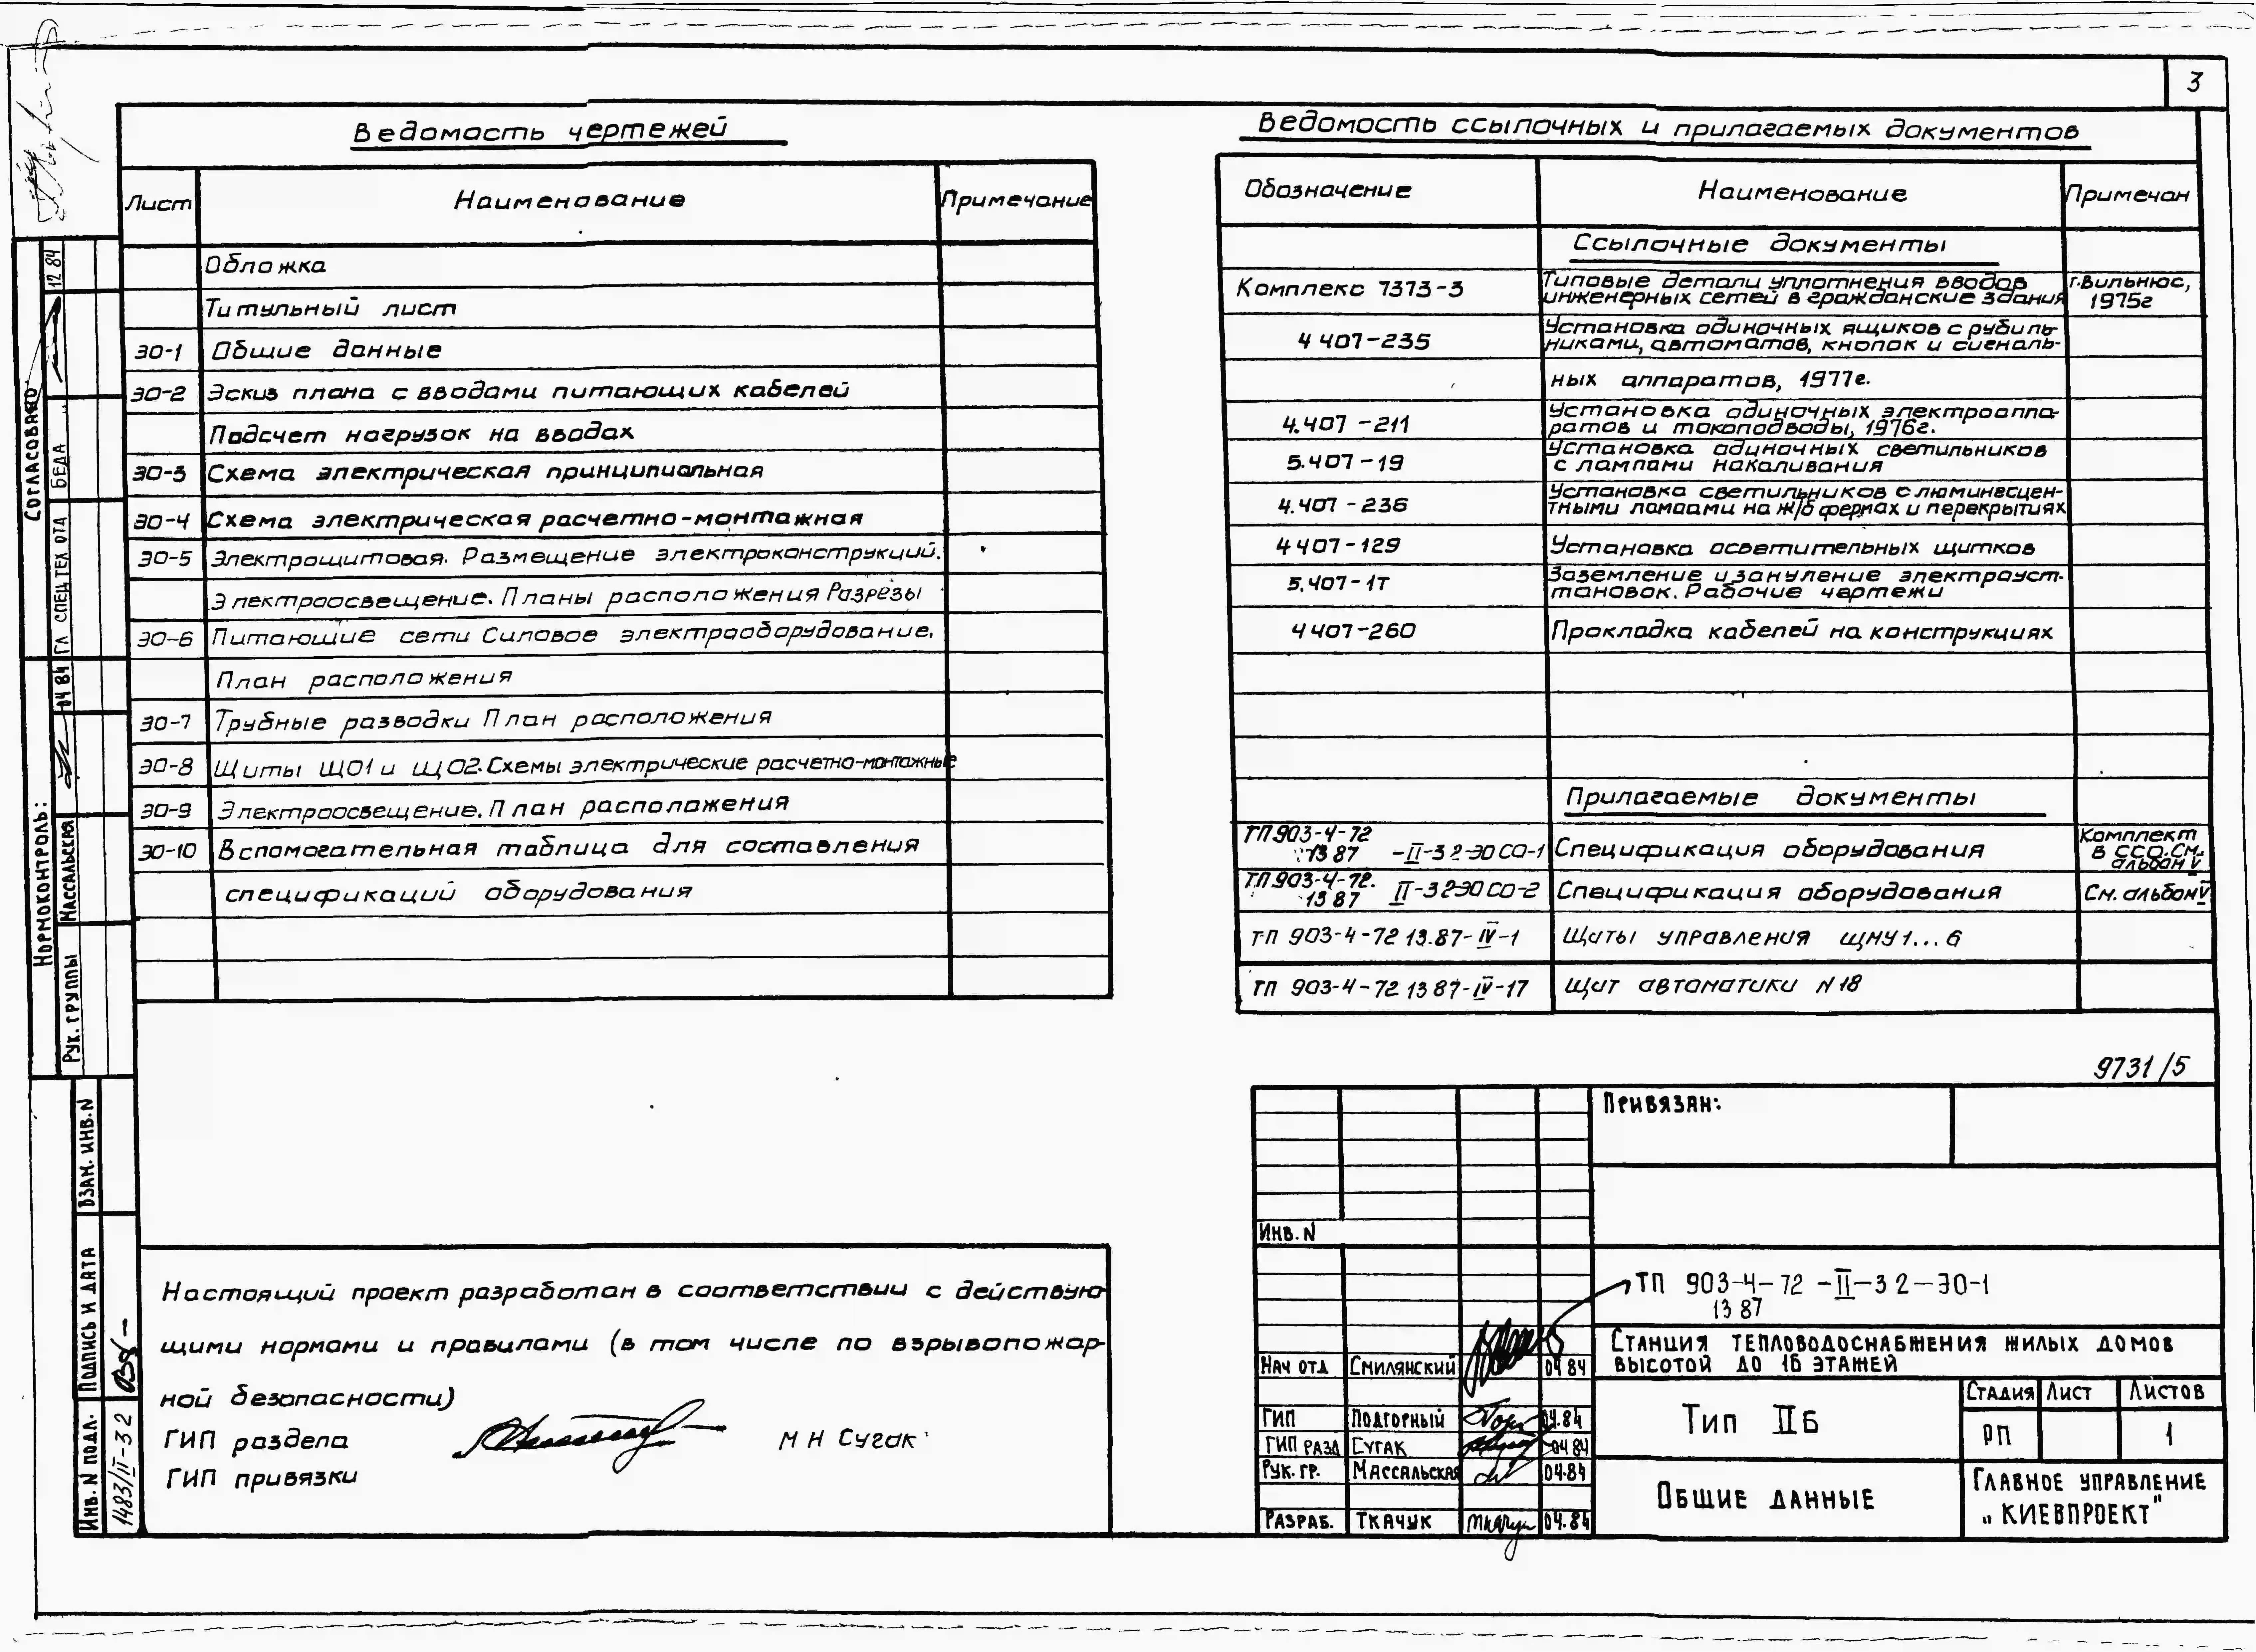 3
Ведомость чертежей
Лист Наименование Примечание
Обложка
Титульный лист
ЭО-1 Общие данные
ЭО-2 Эскиз плана с вводами питающих кабелей
Подсчет нагрузок на вводах
ЭО-3 Схема электрическая принципиальная
ЭО-4 Схема электрическая расчетно-монтажная
ЭО-5 Электрощитовая. Размещение электроконструкций.
Электроосвещение. Планы расположения Разрезы
ЭО-6 Питающие сети Силовое электрооборудование.
План расположения
ЭО-7 Трубные разводки План расположения
ЭО-8 Щиты ЩО1 и ЩО2. Схемы электрические расчетно-монтажные
ЭО-9 Электроосвещение. План расположения
ЭО-10 Вспомогательная таблица для составления
спецификаций оборудования
Ведомость ссылочных и прилагаемых документов
Обозначение Наименование Примечан
Ссылочные документы
Комплекс 7373-3 Типовые детали уплотнения вводов г.Вильнюс,
инженерных сетей в гражданские здания 1975г
4 407-235 Установка одиночных ящиков с рубиль-
никами, автоматов, кнопок и сигналь-
ных аппаратов, 1977г.
4.407-211 Установка одиночных электроаппа-
ратов и токоподводы, 1976г.
5.407-19 Установка одиночных светильников
с лампами накаливания
4.407-236 Установка светильников с люминесцен-
тными лампами на ж/б фермах и перекрытиях
4 407-129 Установка осветительных щитков
5.407-1т Заземление и зануление электроуст-
тановок. Рабочие чертежи
4 407-260 Прокладка кабелей на конструкциях
Прилагаемые документы
ТП 903-4-72 Комплект
13 87 -II-32-ЭО СО-1 Спецификация оборудования в ССО. См.
альбом V
ТП 903-4-72.
13 87 II-32-ЭО СО-2 Спецификация оборудования См. альбом V
ТП 903-4-72 13.87-IV-1 Щиты управления ЩМУ1...6
ТП 903-4-72 13 87-IV-17 Щит автоматики N18
9731/5
Настоящий проект разработан в соответствии с действую-
щими нормами и правилами (в том числе по взрывопожар-
ной безопасности)
ГИП раздела М Н Сугак
ГИП привязки
Привязан:
Инв. N
ТП 903-4-72-II-32-ЭО-1
13 87
Станция тепловодоснабжения жилых домов
высотой до 16 этажей
Нач отд Смилянский 04 84
Стадия Лист Листов
ГИП Подгорный 04.84
Тип IIБ
РП 1
ГИП разд Сугак 04 84
Рук. гр. Массальская 04.84
Разраб. Ткачук Ткачук 04.84
Общие данные
Главное управление
„Киевпроект"
Согласовано
Гл спец тех отд Беда 12 84
Нормоконтроль:
Рук. группы Массальская 04 84
Взам. инв. N
Подпись и дата
Инв. N подл. 1483/II-32